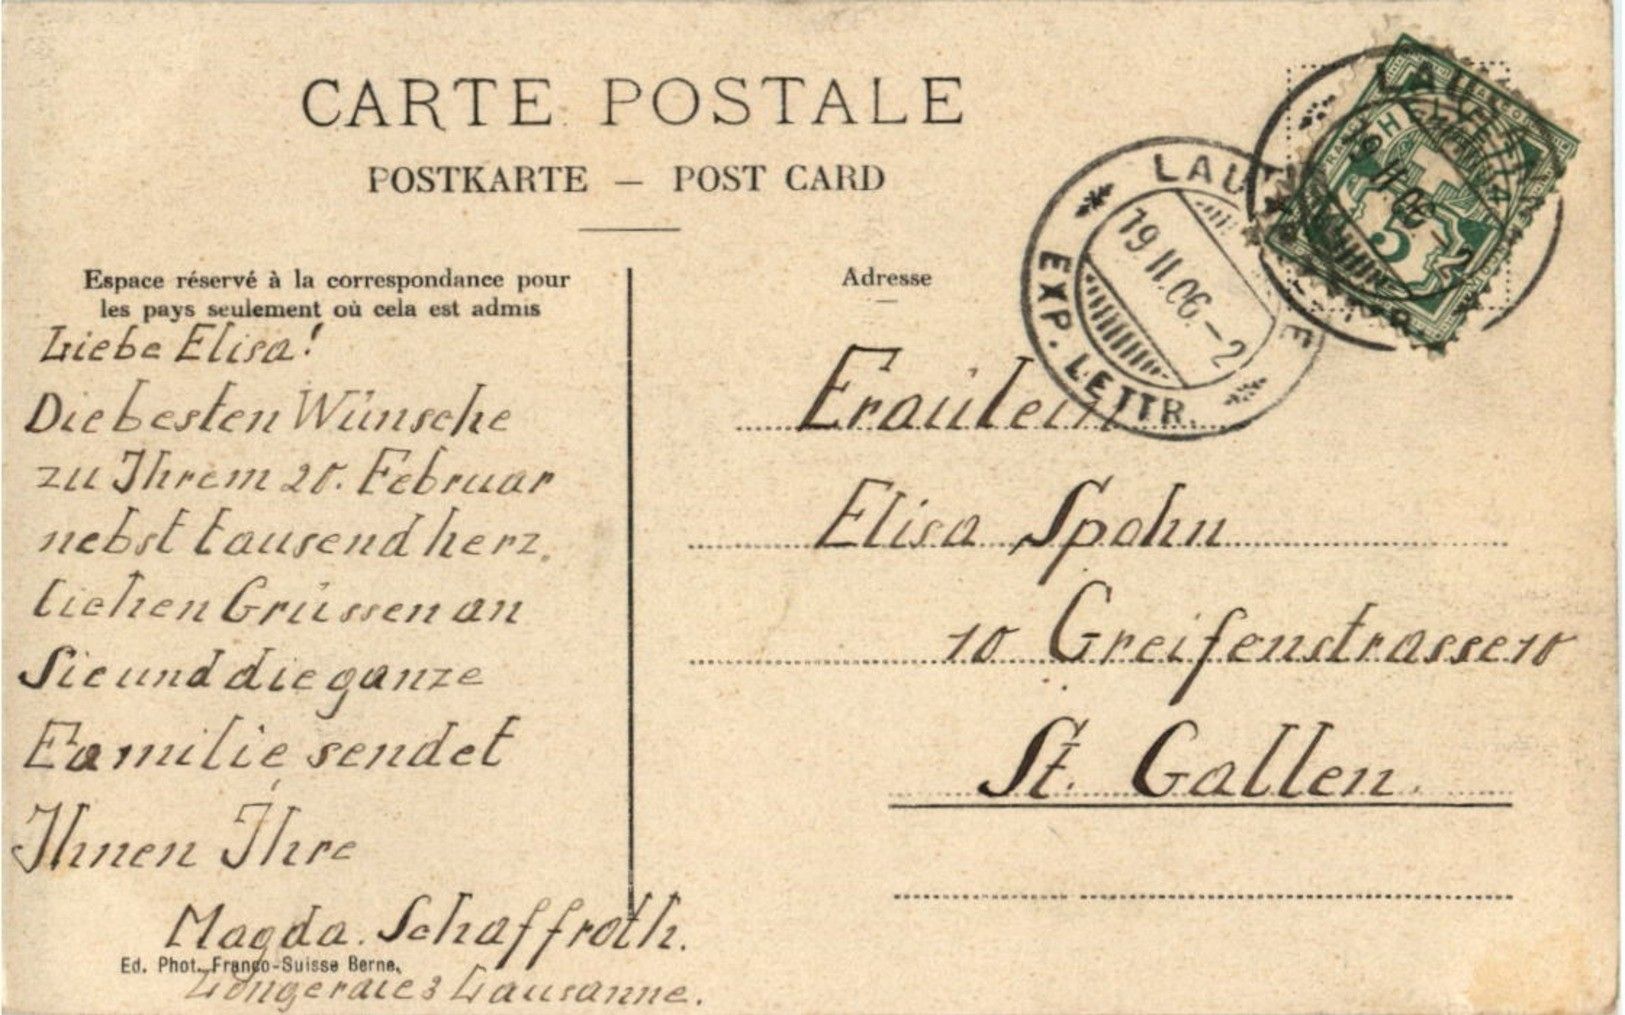 CARTE POSTALE
POSTKARTE — POST CARD
Espace réservé à la correspondance pour
les pays seulement où cela est admis
Liebe Elisa!
Die besten Wünsche
zu Ihrem 20. Februar
nebst tausend herz.
lichen Grüssen an
Sie und die ganze
Familie sendet
Ihnen Ihre
Magda. Schaffroth.
Ed. Phot. Franco-Suisse Berne.
Longeraie 3 Lausanne.
Adresse
Fraülein
Elisa Spohn
10 Greifenstrasse 10
St. Gallen.
19.II.06.–2
EXP. LETTR.
HELVETIA
5